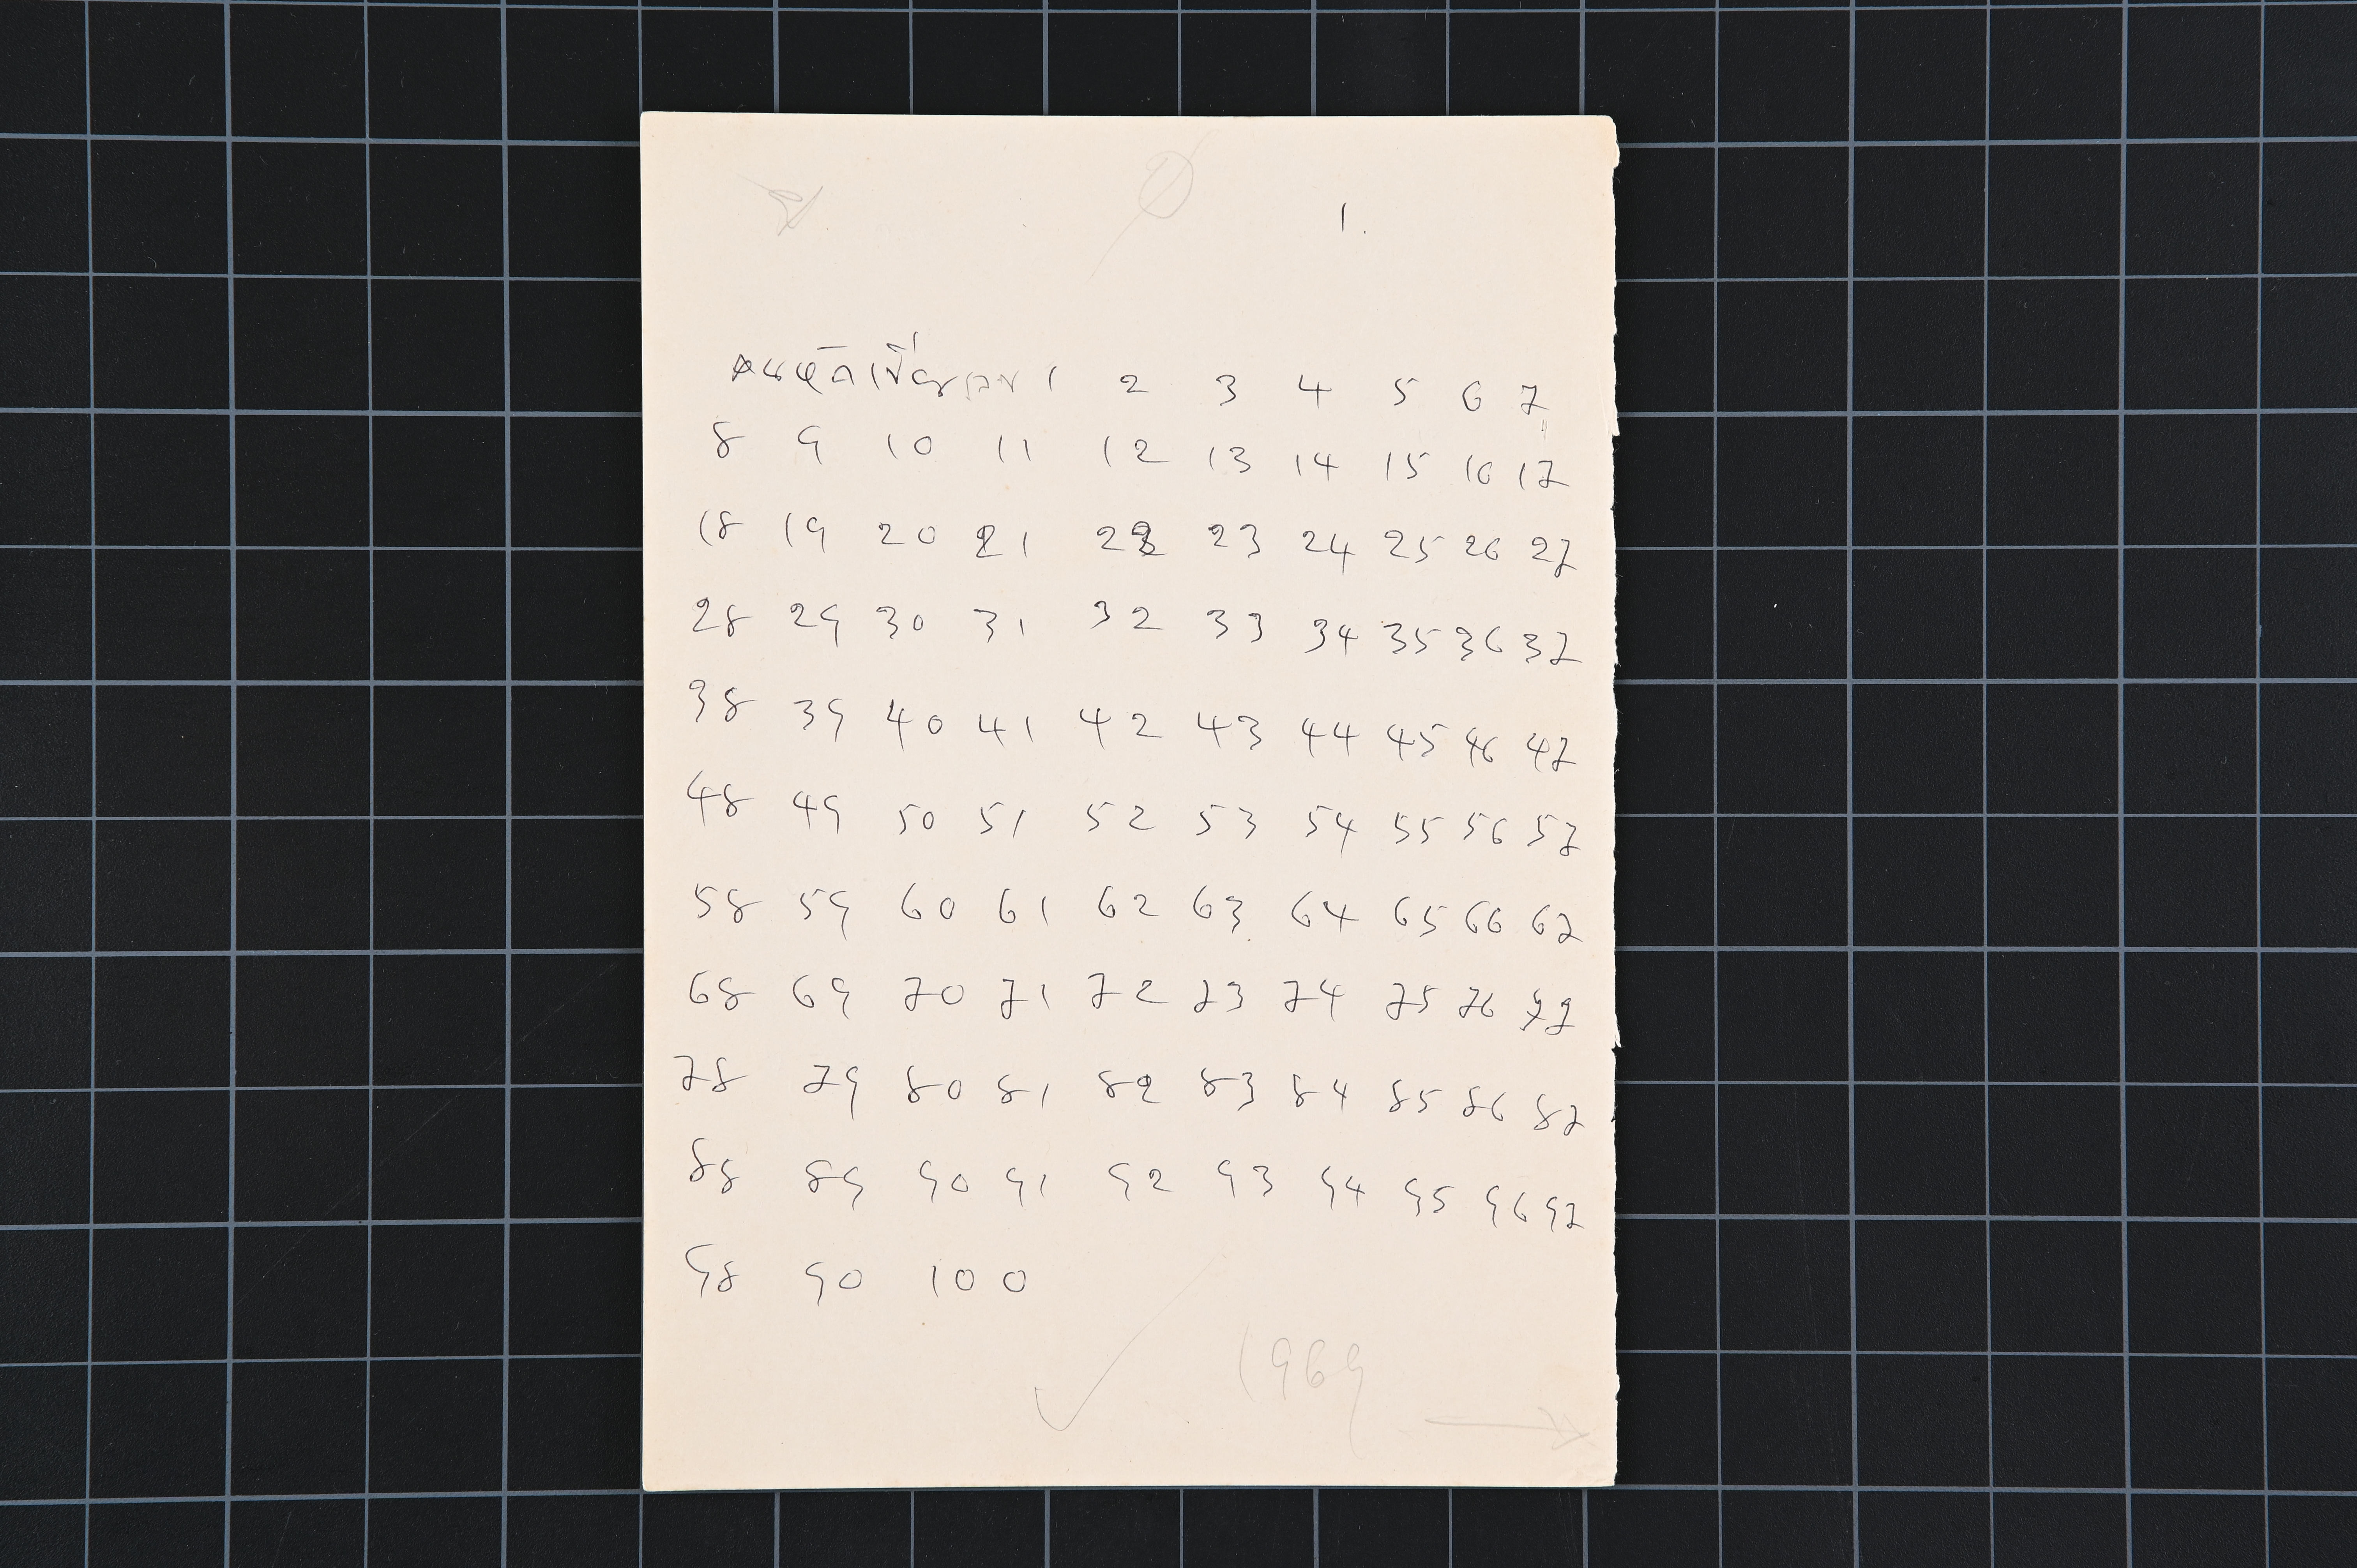 1.
คนหัดเขียนเลข 1 2 3 4 5 6 7
8 9 10 11 12 13 14 15 16 17
18 19 20 21 22 23 24 25 26 27
28 29 30 31 32 33 34 35 36 37
38 39 40 41 42 43 44 45 46 47
48 49 50 51 52 53 54 55 56 57
58 59 60 61 62 63 64 65 66 67
68 69 70 71 72 73 74 75 76 77
78 79 80 81 82 83 84 85 86 87
88 89 90 91 92 93 94 95 96 97
98 90 100
1969